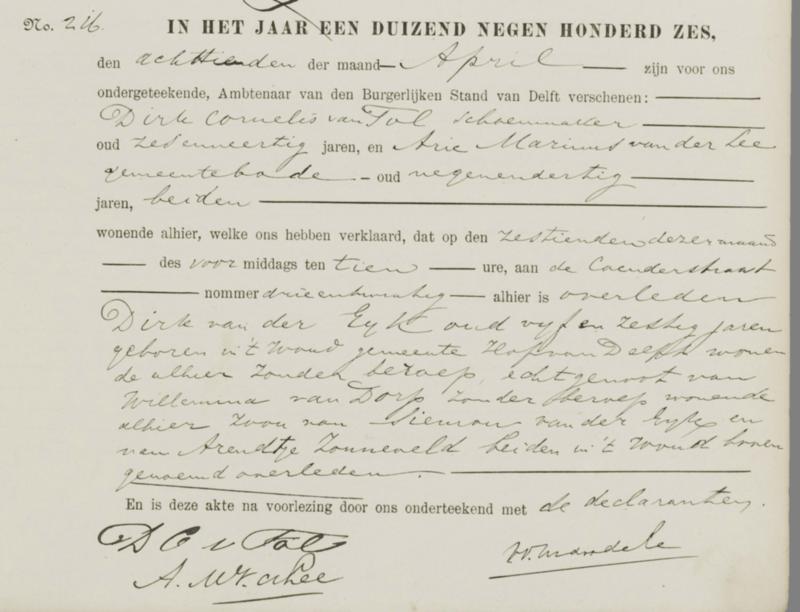 No. 216. IN HET JAAR EEN DUIZEND NEGEN HONDERD ZES,
den achttienden der maand April zijn voor ons
ondergeteekende, Ambtenaar van den Burgerlijken Stand van Delft verschenen:
Dirk Cornelis van Tol schoenmaker
oud zesenveertig jaren, en Arie Marinus van der Lee
gemeentebode - oud negenendertig
jaren, beiden
wonende alhier, welke ons hebben verklaard, dat op den zestienden dezer maand
des voor middags ten tien ure, aan de Coenderstraat
nommer drieentwintig alhier is overleden
Dirk van der Eyk oud vyf en zestig jaren
geboren in 't Woud gemeente Hof van Delft wonen
de alhier zonder beroep, echtgenoot van
Willemina van Dorp zonder beroep wonende
alhier zoon van Siemon van der Eyk en
van Arendtje Zonneveld beiden in 't Woud boven
genoemd overleden.
En is deze akte na voorlezing door ons onderteekend met de declaranten.
D C v Tol
A. M. v. d. Lee